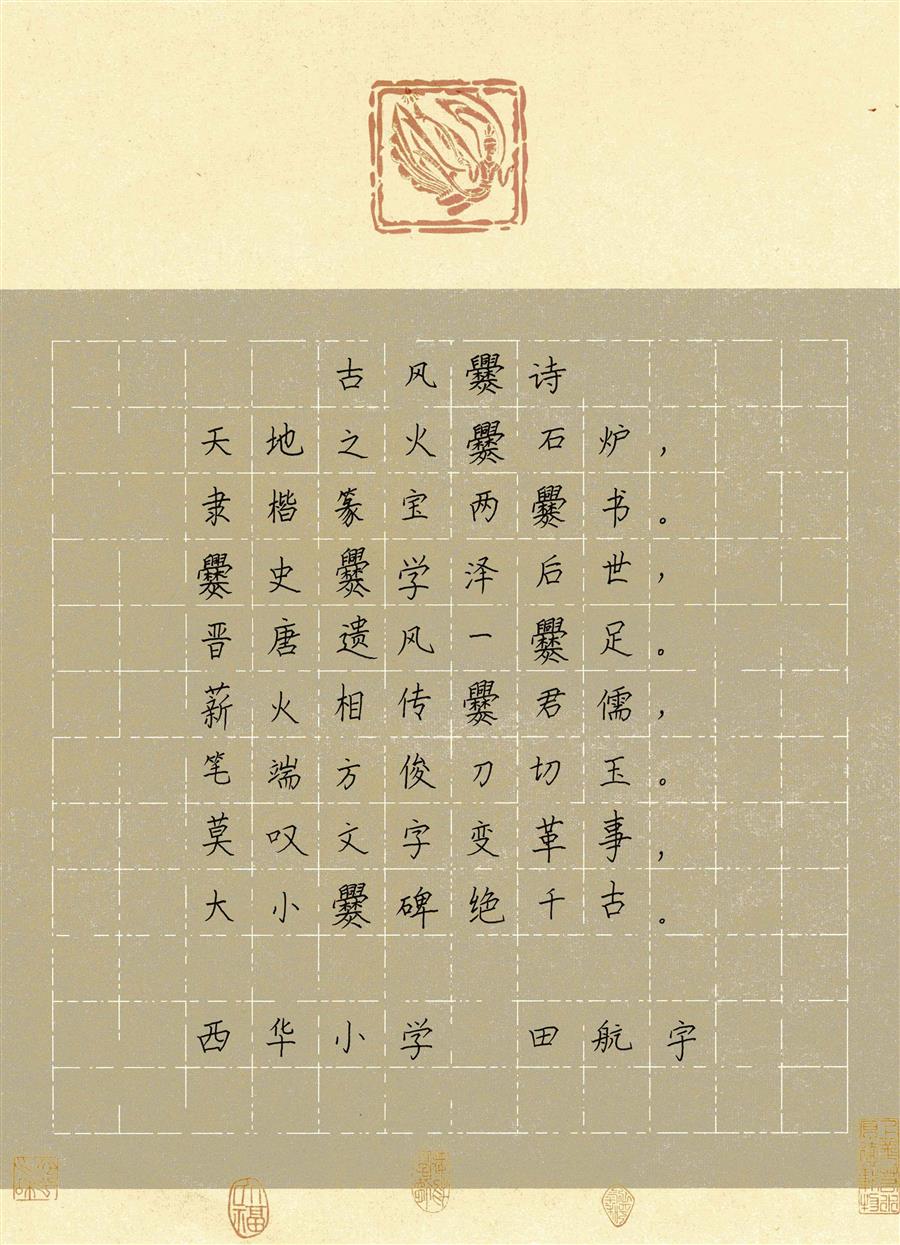 古风爨诗
天地之火爨石炉，
隶楷篆宝两爨书。
爨史爨学泽后世，
晋唐遗风一爨足。
薪火相传爨君儒，
笔端方俊刀切玉。
莫叹文字变革事，
大小爨碑绝千古。
西华小学 田航宇